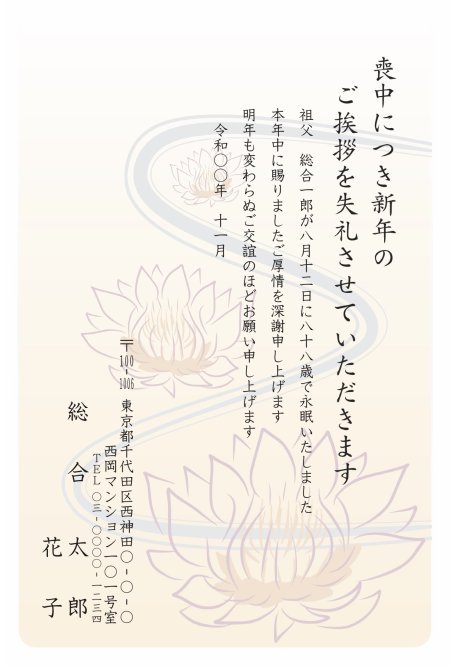 喪中につき新年の
ご挨拶を失礼させていただきます
祖父　総合一郎が八月十二日に八十八歳で永眠いたしました
本年中に賜りましたご厚情を深謝申し上げます
明年も変わらぬご交誼のほどお願い申し上げます
令和〇〇年　十一月
〒100-1006　東京都千代田区西神田〇-〇-〇
西岡マンション一〇一号室
TEL 〇三-〇〇〇〇-一二三四
総合　太郎
花子